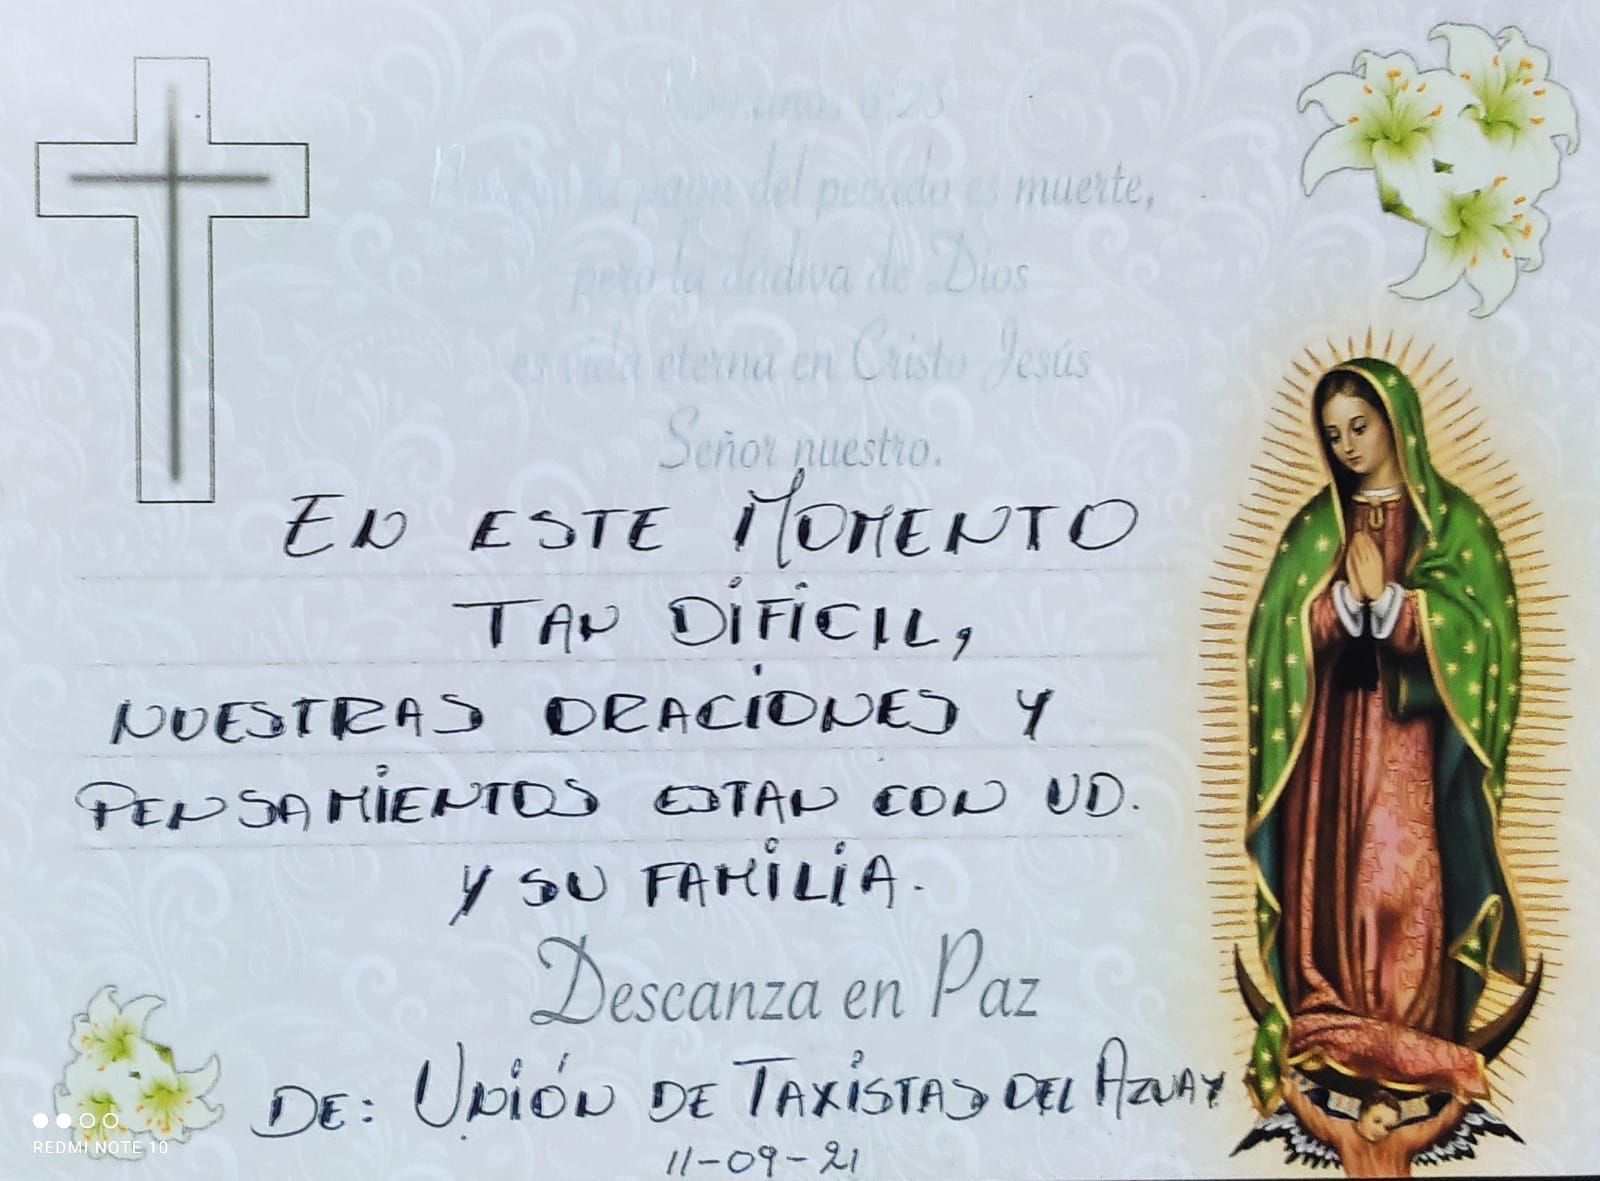 Romanos 6:23
Porque la paga del pecado es muerte,
pero la dádiva de Dios
es vida eterna en Cristo Jesús
Señor nuestro.
EN ESTE MOMENTO
TAN DIFICIL,
NUESTRAS ORACIONES Y
PENSAMIENTOS ESTAN CON UD.
Y SU FAMILIA.
Descanza en Paz
DE: UNIÓN DE TAXISTAS DEL AZUAY
11-09-21
REDMI NOTE 10